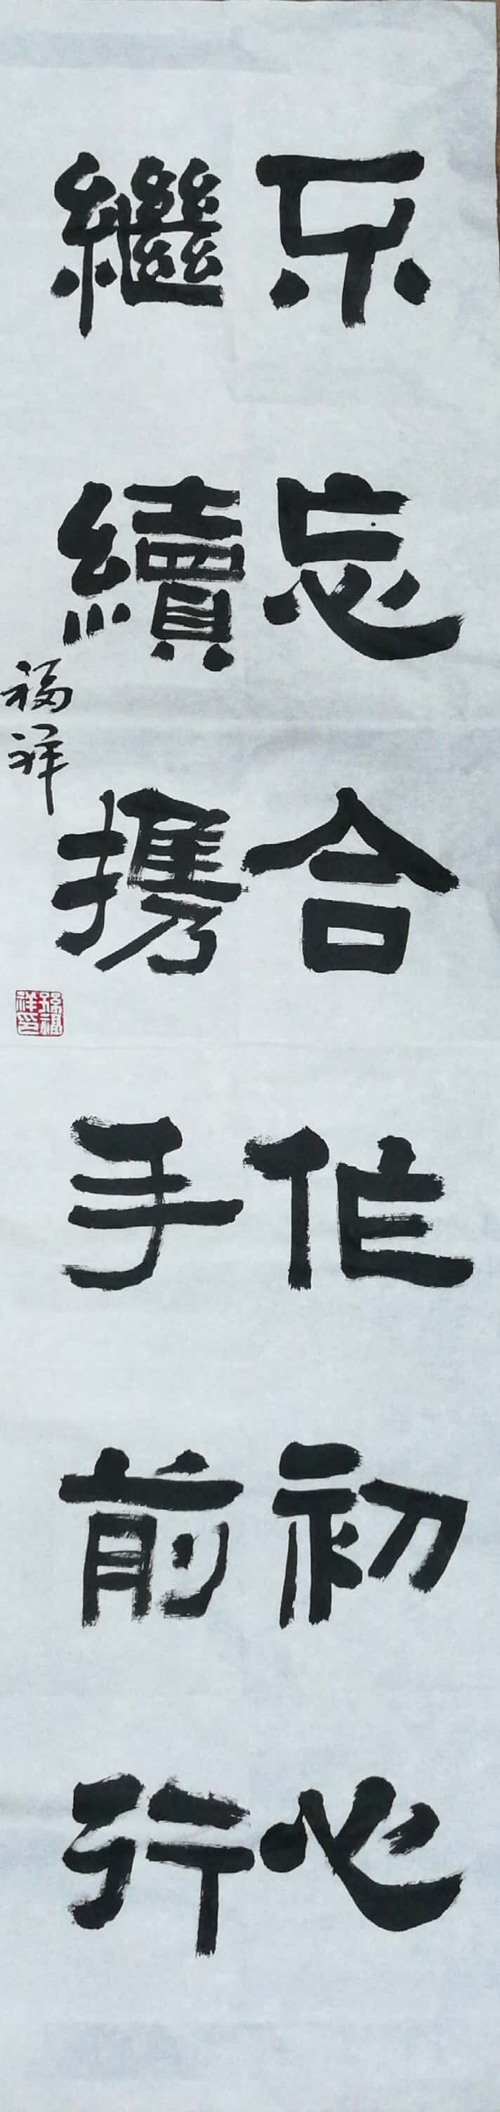 不忘合作初心
繼續携手前行
福祥
孫福祥印